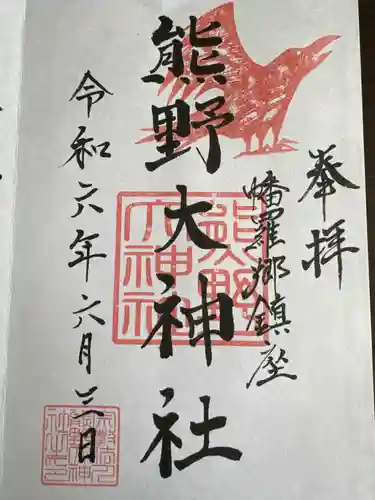 奉拝
幡羅郷鎮座
熊野大神社
令和六年六月三日
熊野大神社